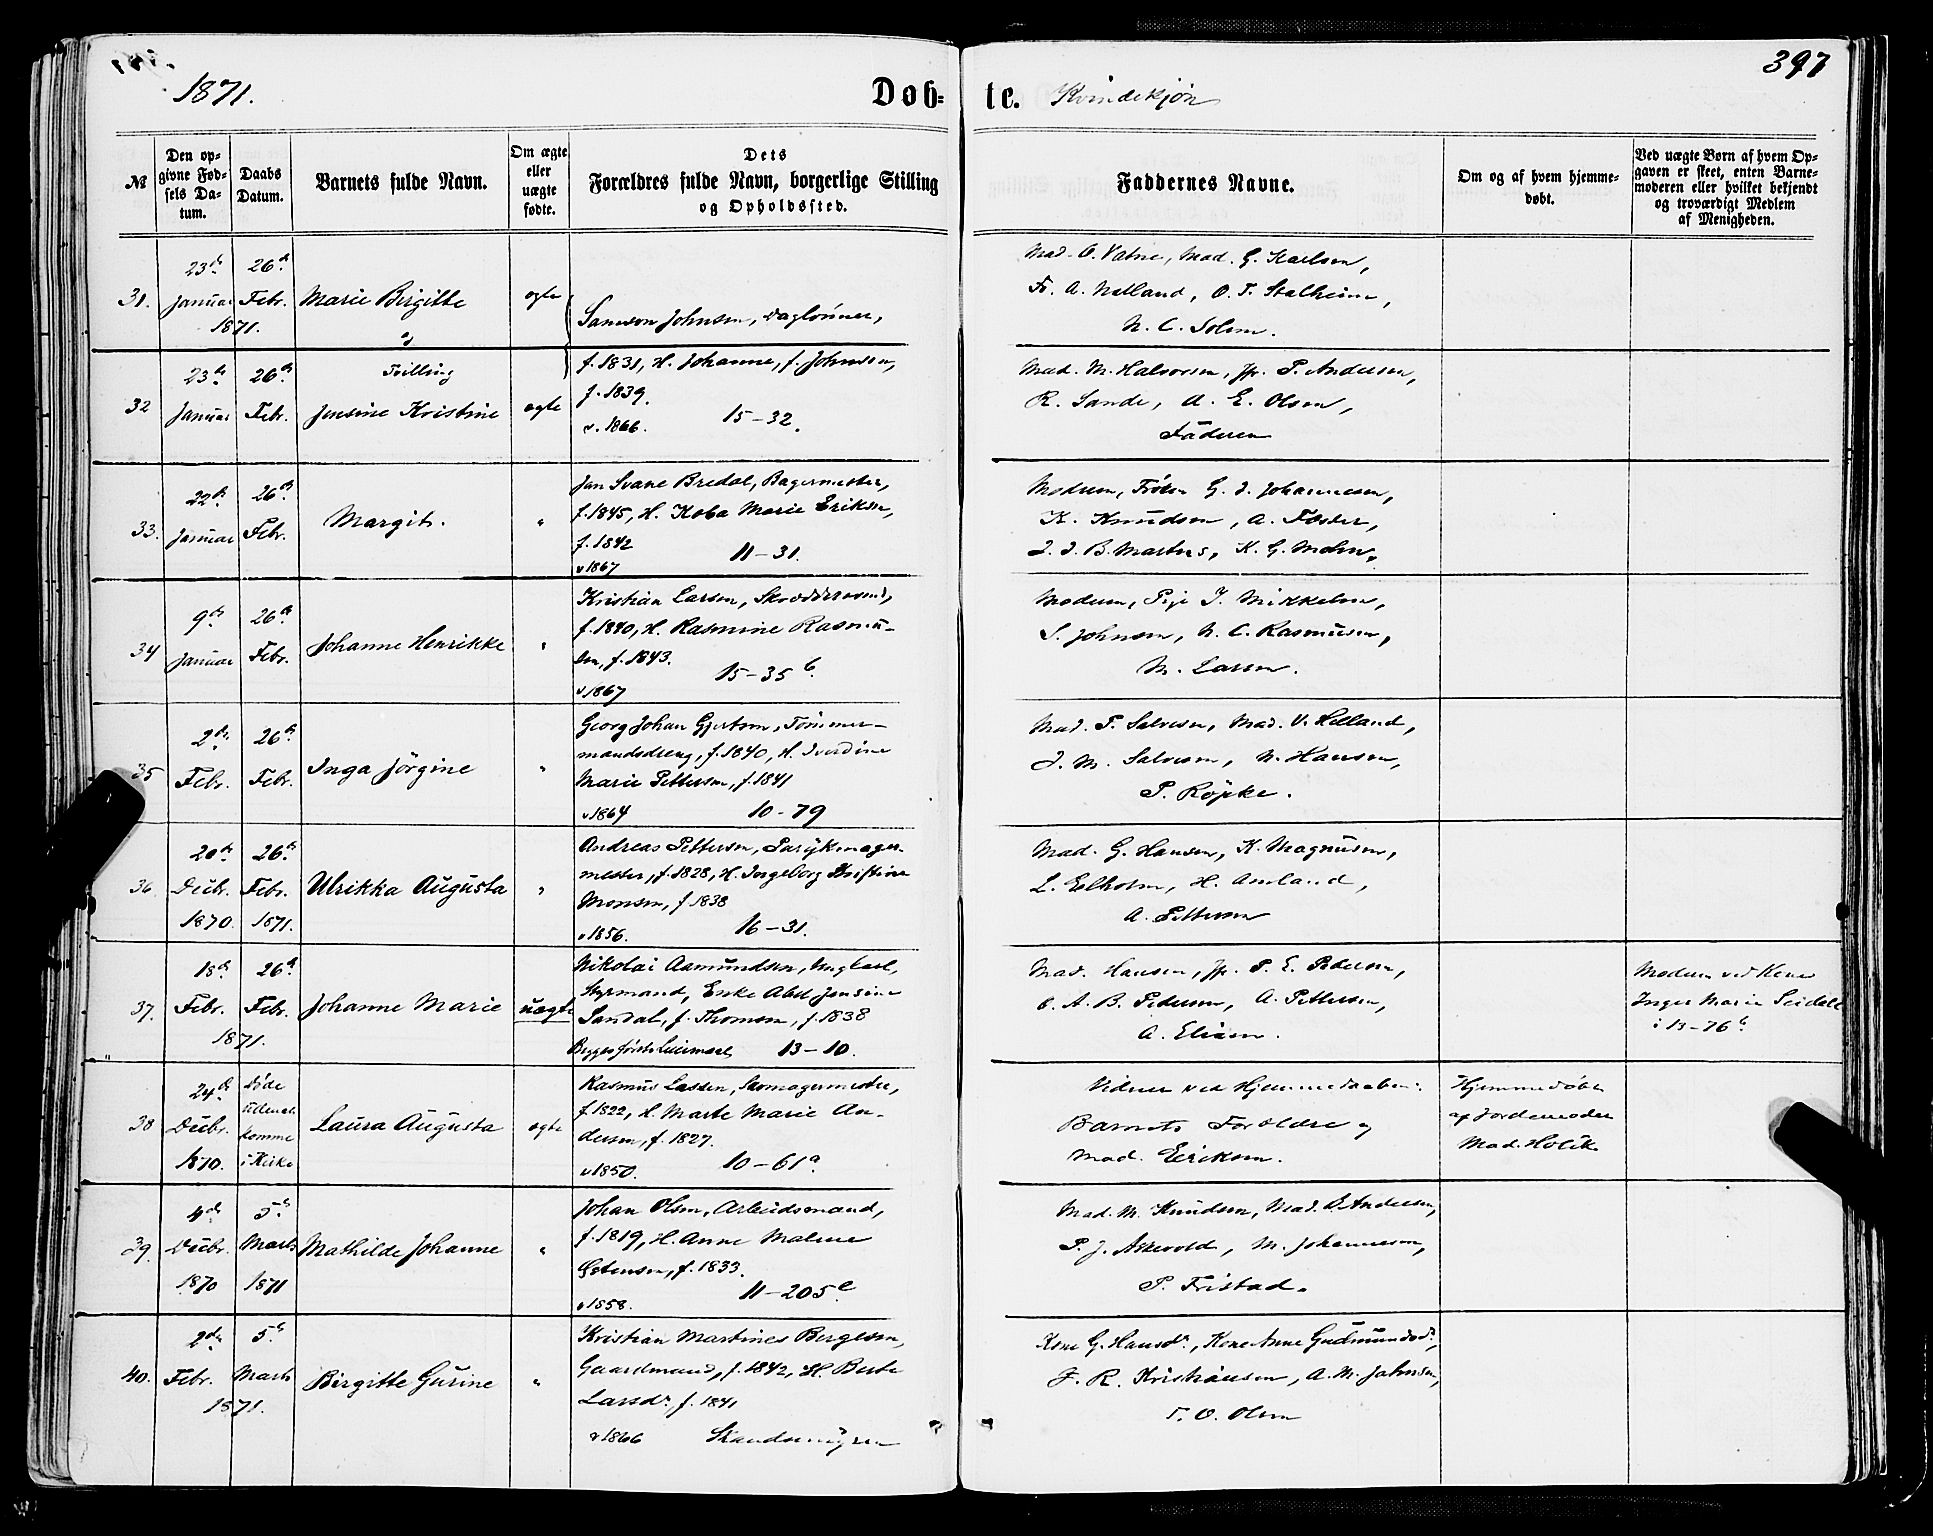 1871.
Døb-
te.
Kvindekjøn
397
№
Den op-
givne Fød-
sels Da-
tum.
Daabs
Datum.
Barnets fulde Navn.
Om ægte
eller
uægte
fødte.
Dets
Forældres fulde Navn, borgerlige Stilling
og Opholdssted.
Faddernes Navne.
Om og af hvem hjemme-
døbt.
Ved uægte Børn af hvem Op-
gaven er skeet, enten Barne-
moderen eller hvilket bekjendt
og troværdigt Medlem
af Menigheden.
31.
23de
Januar
26de
Febr.
1871.
Marie Birgitte
og
ægte
Samson Johnsen, Daglønner,
Mad. O. Vatne, Mad. G. Karlsen,
Fr. A. Nelland, O. T. Stalheim,
N. C. Solem.
32
23de
Januar
26de
Febr.
Tvilling
Jensine Kristine
ægte
f. 1831, H. Johanne, f. Johnsen,
f. 1839.
v. 1866. 15-32.
Mad. M. Halvorsen, Jfr. P. Andersen,
R. Sande, A. E. Olsen,
Faderen
33.
22de
Januar
26de
Febr.
Margit.
"
Jan Svane Bredal, Bagermester,
f. 1845, H. Koba Marie Eriksen,
f. 1842
v 1867 11-31.
Moderen, Frøken G. J. Johannesen,
K. Knudsen, A. Foster,
J. J. B. Martens, K. G. Mohn.
34
9de
Januar
26de
Febr.
Johanne Henrikke
"
Kristian Larsen, Skræddersvend,
f. 1840, H. Rasmine Rasmu-
sen, f. 1843.
v 1867 15-35 b.
Moderen, Pige J. Mikkelsen,
S. Johnsen, N. C. Rasmusen,
M. Larsen.
35
2den
Febr.
26de
Febr.
Inga Jörgine
"
Georg Johan Gjertsen, Tømmer-
mandsdreng, f. 1840, H. Iverdine
Marie Pettersen, f. 1841
v 1864 10-79
Mad. T. Salvesen, Mad. V. Helland,
J. M. Salvesen, N. Hansen,
P. Röpke.
36.
20de
Decbr.
1870.
26de
Febr.
1871.
Ulrikka Augusta
"
Andreas Pettersen, Parykmager-
mester, f. 1828, H. Ingeborg Kristine
Monsen, f 1838
v 1856. 16-31.
Mad. G. Hansen, K. Magnusen,
L. Eelholm, H. Amland,
A. Pettersen
37.
18de
Febr.
26de
Febr.
1871.
Johanne Marie
uægte
Nikolai Aamundsen, Ungkarl,
Styrmand, Enke Abel Jensine
Sandal, f. Thomsen, f. 1838
Begges første Leiermaal 13-10.
Mad. Hansen, Jfr. P. E. Pedersen,
C. A. B. Pedersen, A. Pettersen,
A. Eliasen.
Moderen ved Kone
Inger Marie Seidel
i 13-76 b
38
24de
Decbr.
1870.
Døde
komme
i Kirke
Laura Augusta
ægte
Rasmus Lassen, Skomagermester,
f. 1822, H. Marte Marie An-
dersen, f. 1827.
v 1850. 10-61 a.
Vidner ved Hjemmedaaben:
Barnets Forældre og
Mad. Eriksen.
Hjemmedøbt
af Jordemoder
Mad. Holik
39.
4de
Decbr.
1870
5te
Marts
1871
Mathilde Johanne
"
Johan Olsen, Arbeidsmand,
f. 1819, H. Anne Malene
f. 1833.
v 1858. 11-205 e
Mad. M. Knudsen, Mad. O. Andersen,
P. J. Askevold, M. Johannesen,
P. Fristad.
40.
2den
Febr.
5te
Marts
1871.
Birgitte Gurine
"
Kristian Martines Bergesen,
Gaardmand, f. 1842, H. Berte
Larsdr, f. 1841
v 1866
Kone G. Hansdr., Kone Anne Gudmundsdr.,
F. R. Kristiansen, A. M. Johnsen,
T. O. Olsen